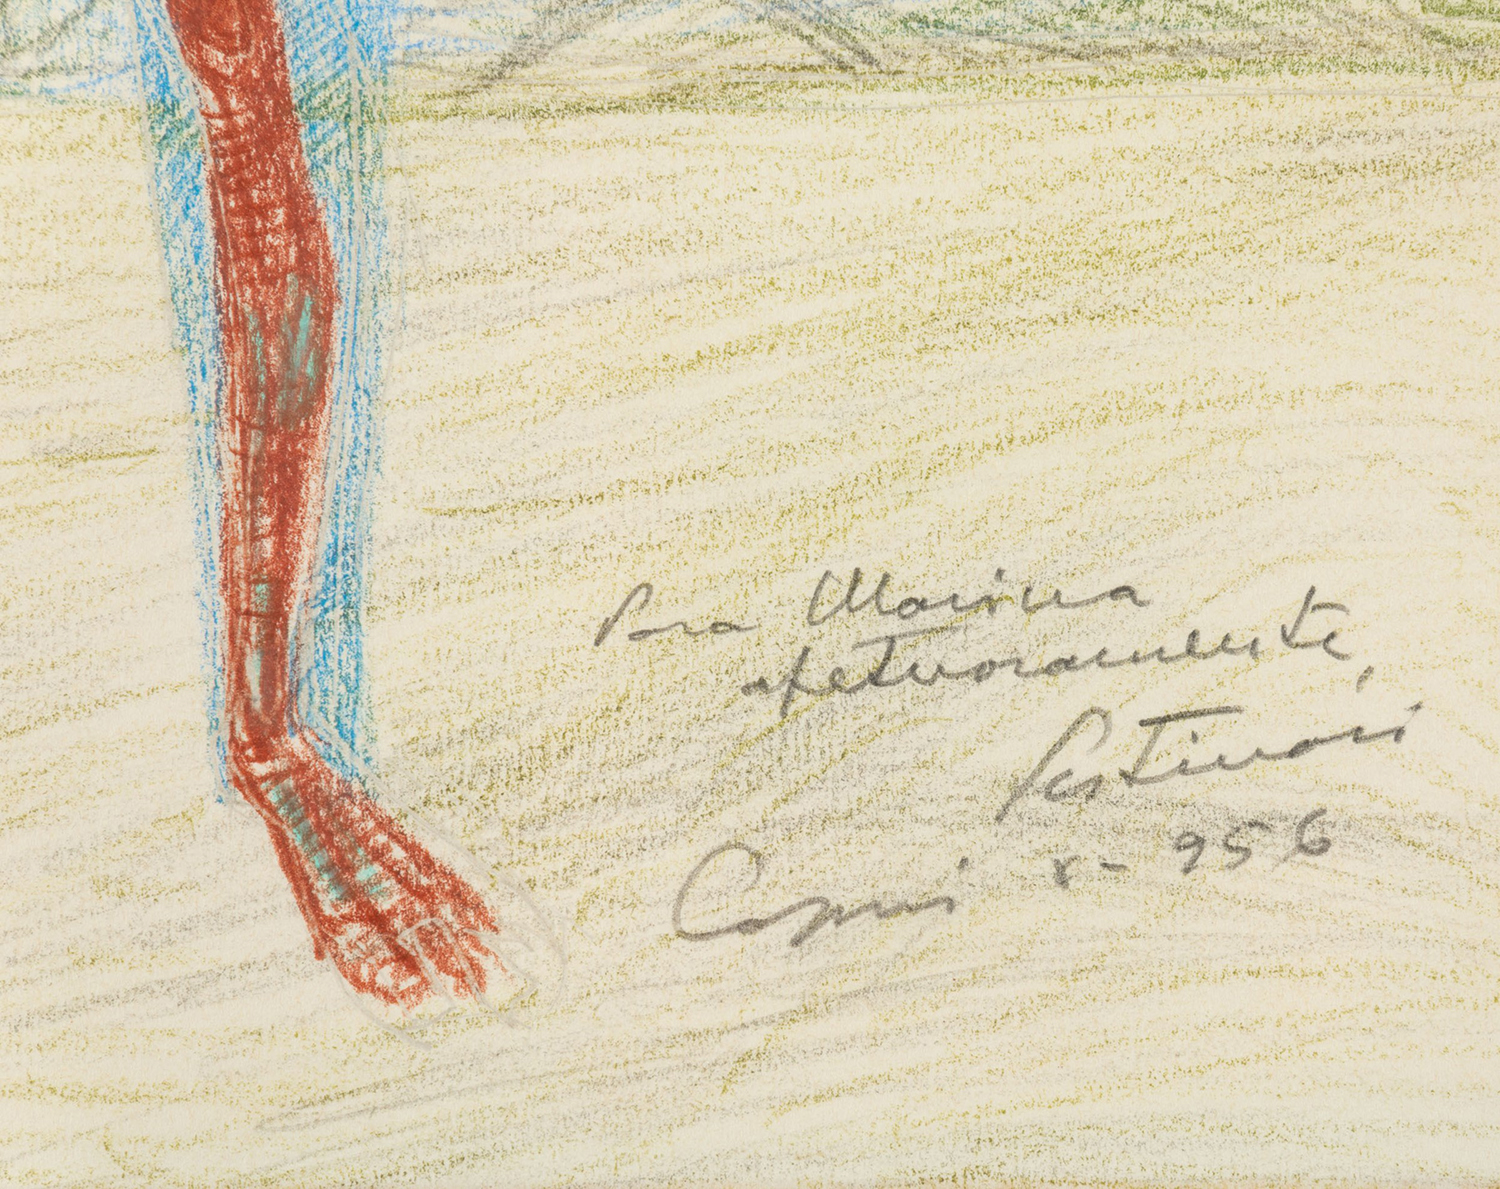 Para Marina
afetuosamente,
Portinari
Capri x - 956